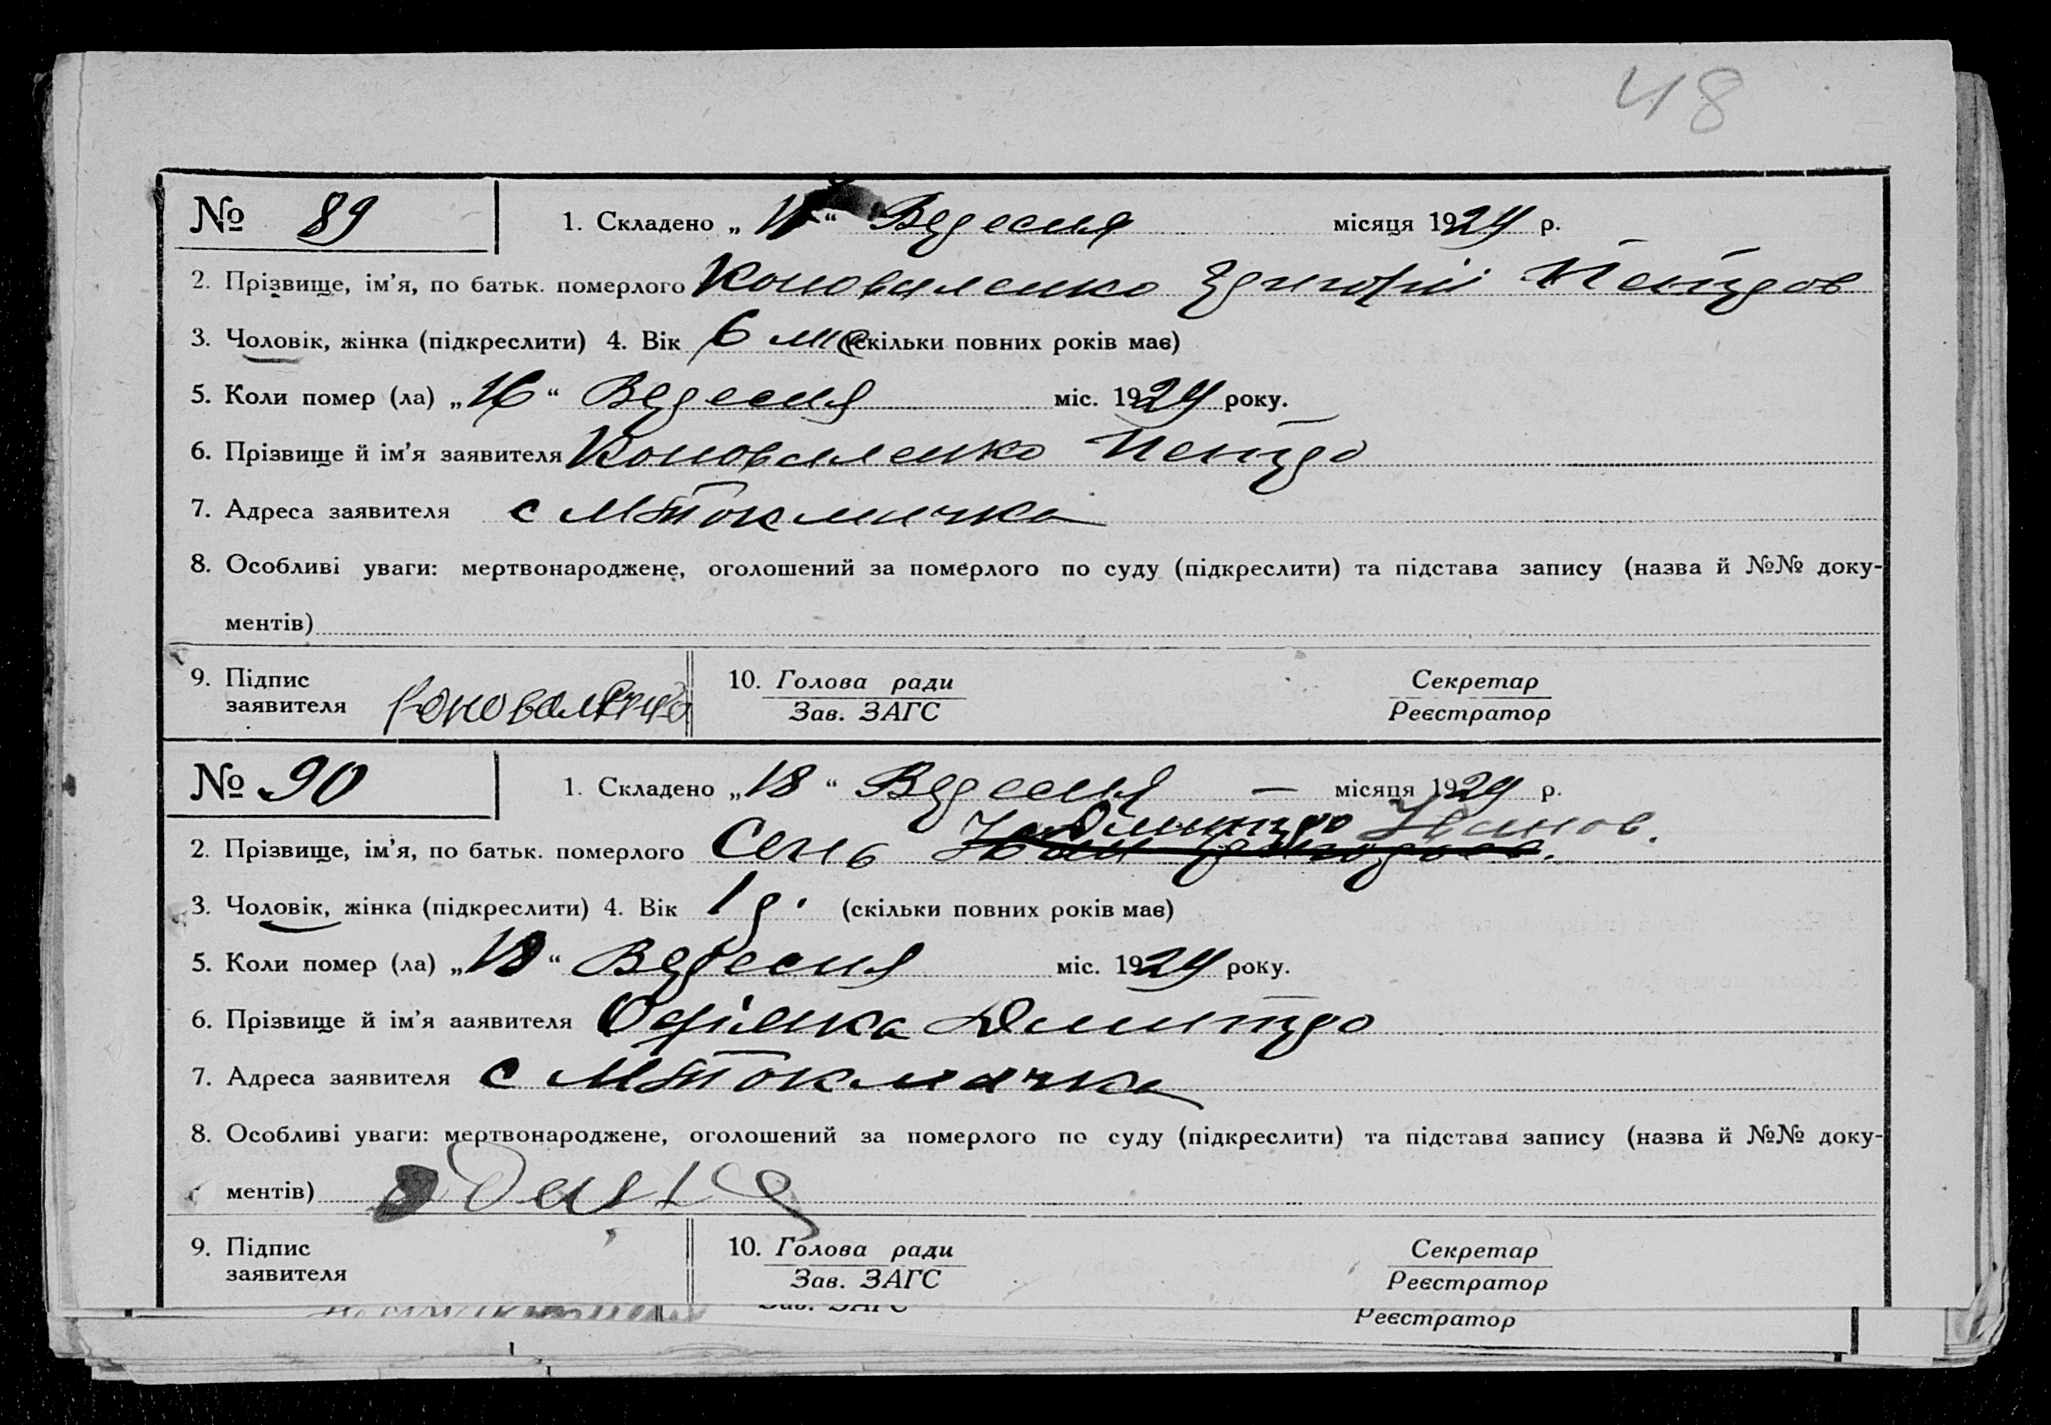 48
№ 89 1. Складено „ “ Вересня місяця 1924 р.
2. Прізвище, ім'я, по батьк. померлого Коноваленко Григорій Петров
3. Чоловік, жінка (підкреслити) 4. Вік 6 міс (скільки повних років має)
5. Коли помер (ла) „16“ Вересня міс. 1924 року.
6. Прізвище й ім'я заявителя Коноваленко Петро
7. Адреса заявителя с МТокмачка
8. Особливі уваги: мертвонароджене, оголошений за померлого по суду (підкреслити) та підстава запису (назва й №№ доку-
ментів)
9. Підпис 10. Голова ради Секретар
заявителя Коноваленко Зав. ЗАГС Реєстратор
№ 90 1. Складено „18“ Вересня — місяця 1924 р.
Дмитро Іванов.
2. Прізвище, ім'я, по батьк. померлого Сень Іван Григоров.
3. Чоловік, жінка (підкреслити) 4. Вік 1 р. (скільки повних років має)
5. Коли помер (ла) „18“ Вересня міс. 1924 року.
6. Прізвище й ім'я ааявителя Дмитро
7. Адреса заявителя с МТокмачка
8. Особливі уваги: мертвонароджене, оголошений за померлого по суду (підкреслити) та підстава запису (назва й №№ доку-
ментів)
9. Підпис 10. Голова ради Секретар
заявителя Зав. ЗАГС Реєстратор
Зав. ЗАГС Реєстратор